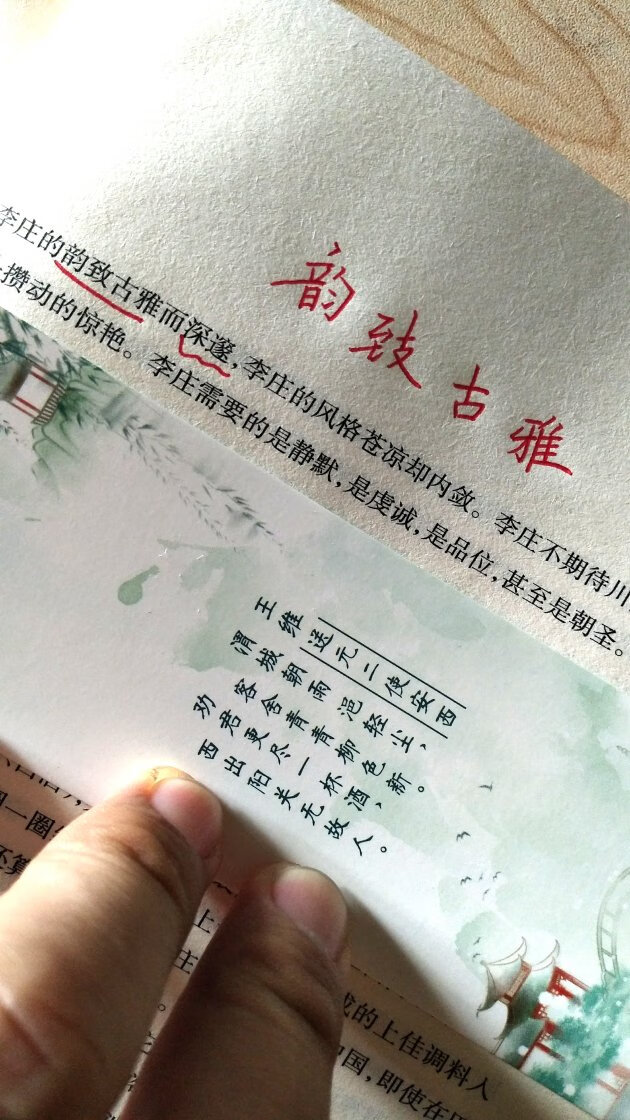 韵致古雅
李庄的韵致古雅而深邃,李庄的风格苍凉却内敛。李庄不期待川
攒动的惊艳。李庄需要的是静默,是虔诚,是品位,甚至是朝圣。
王维 送元二使安西
渭城朝雨浥轻尘,
客舍青青柳色新。
劝君更尽一杯酒,
西出阳关无故人。
一圈
还算
上
主
的上佳调料人
国,即使在